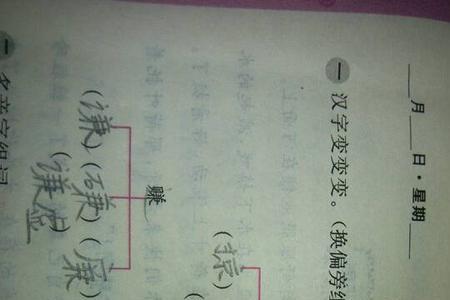 ___月___日·星期___
一 汉字变变变。(换偏旁组
赚
(谦)(磏)(廉)
谦虚
(掠)
多音字组词